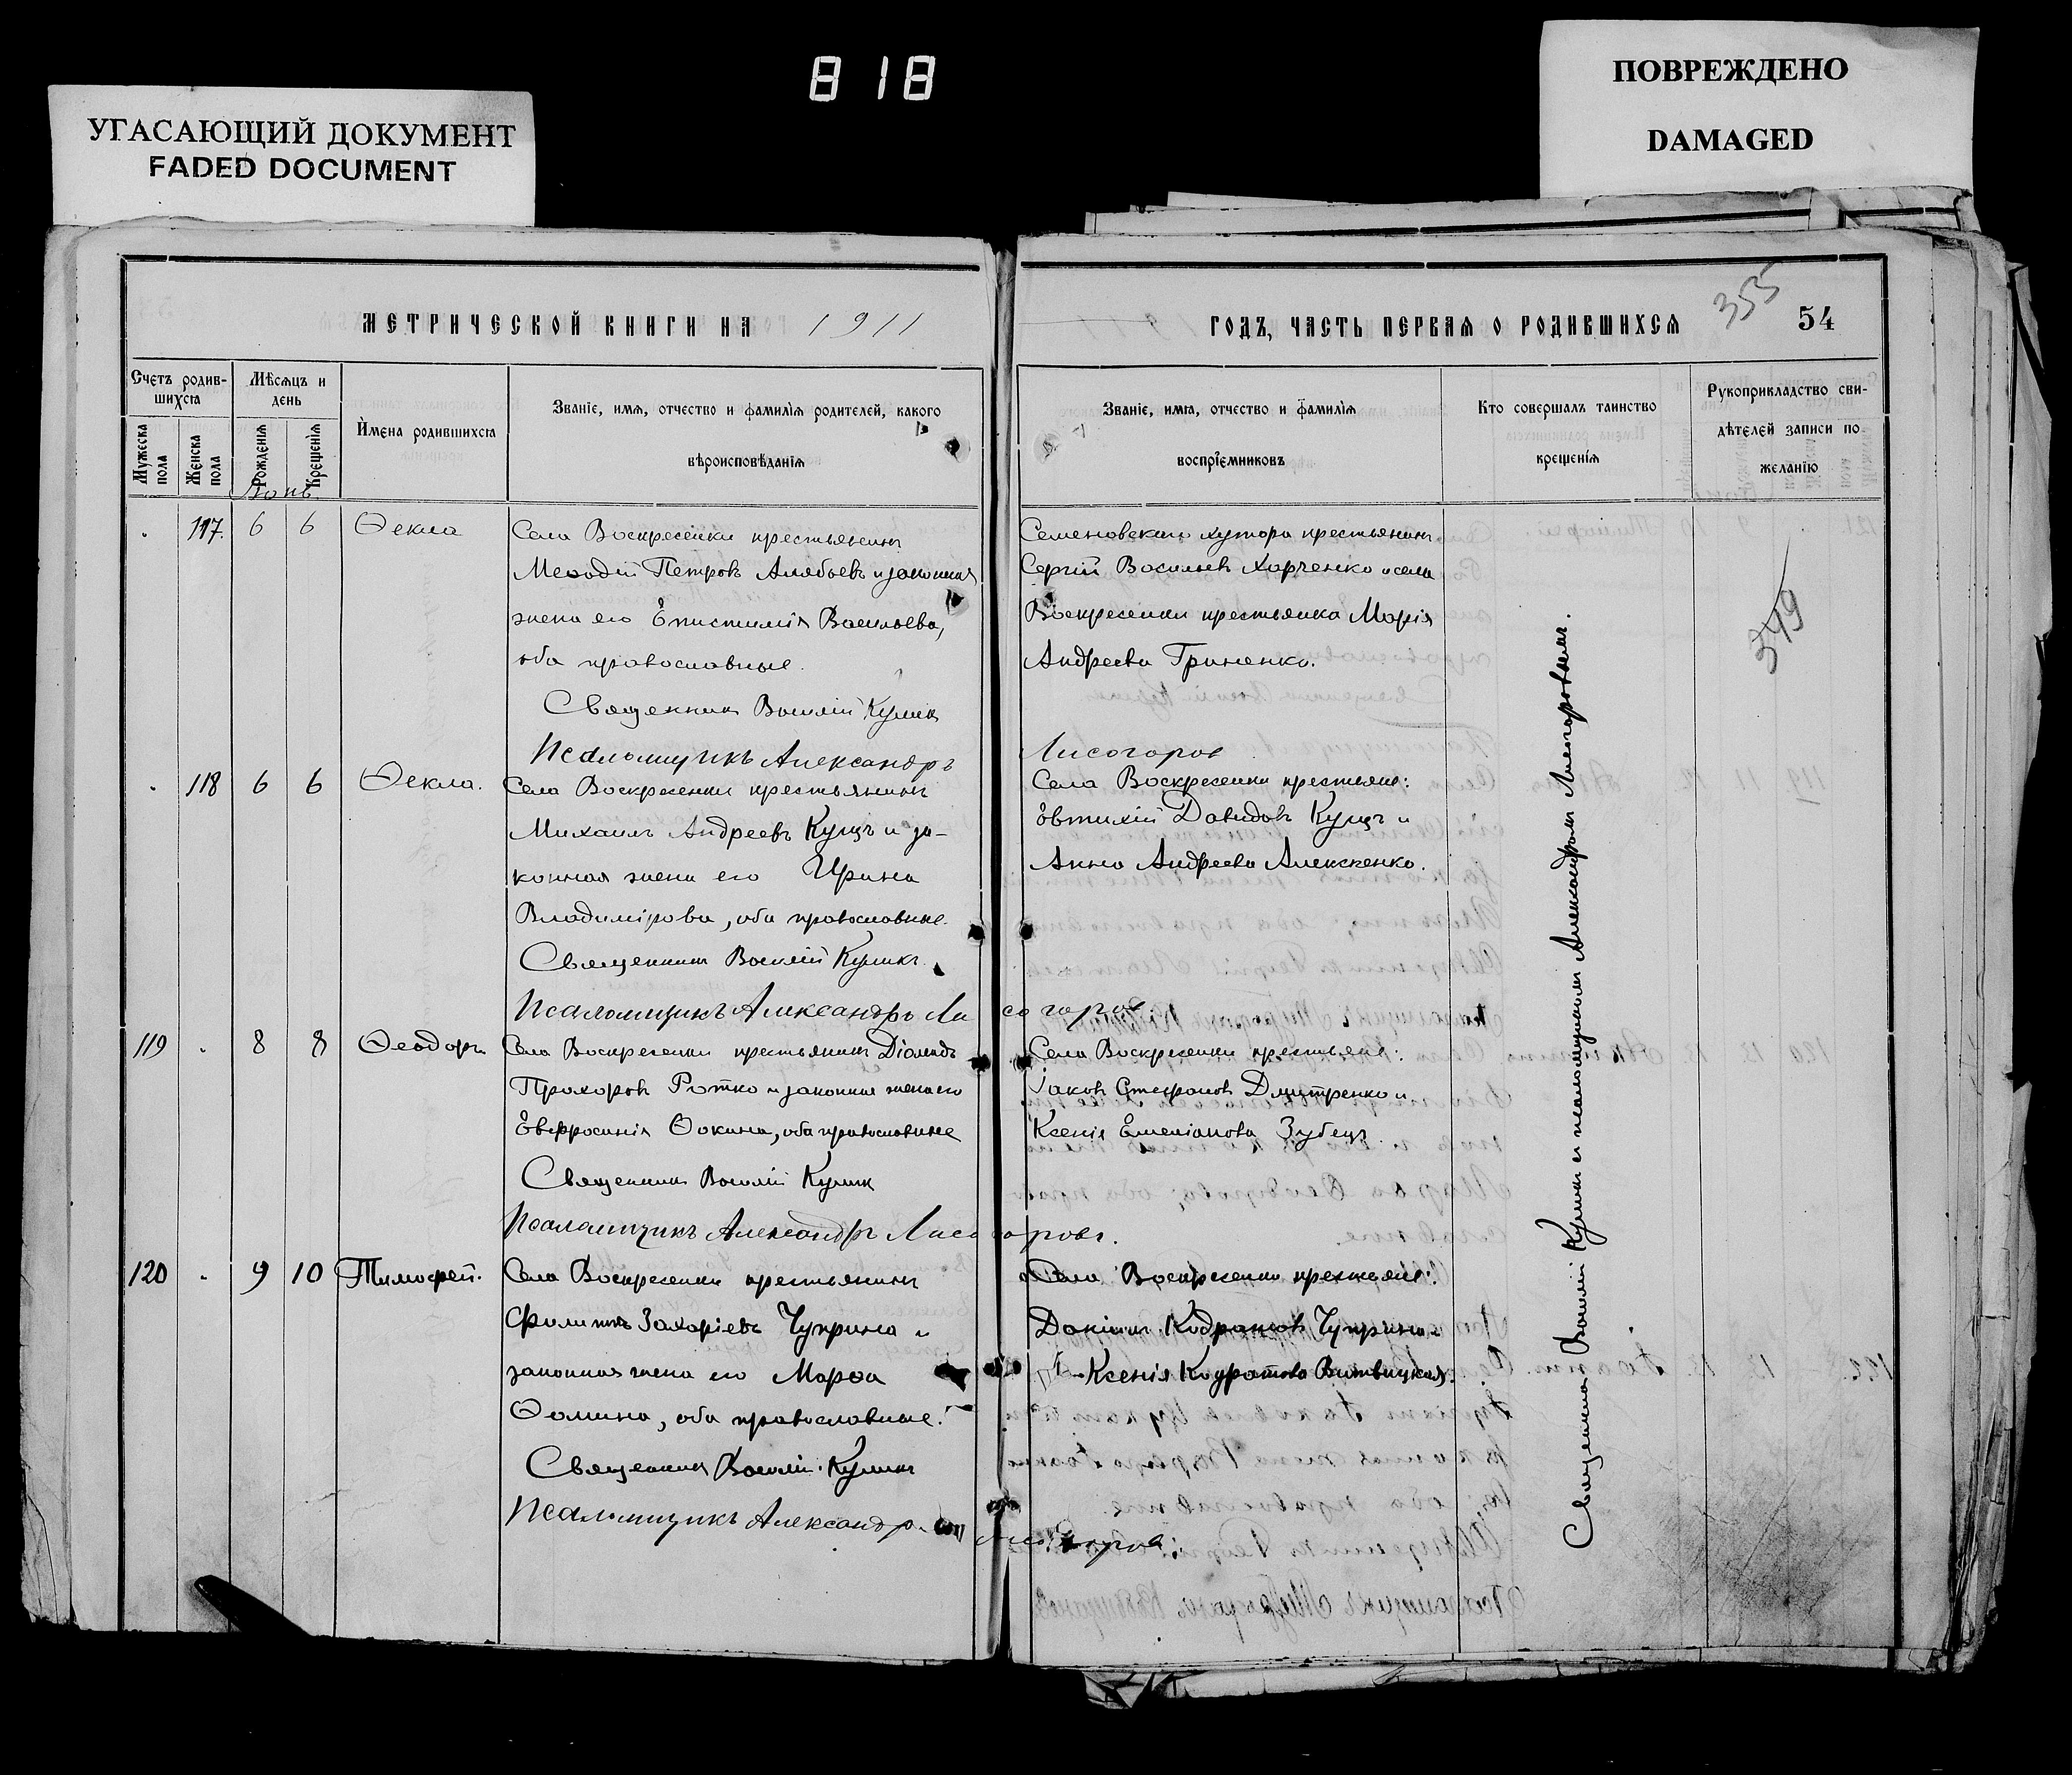 818
УГАСАЮЩИЙ ДОКУМЕНТ
FADED DOCUMENT
ПОВРЕЖДЕНО
DAMAGED
МЕТРИЧЕСКОЙ КНИГИ НА 1911
ГОДЪ, ЧАСТЬ ПЕРВАЯ О РОДИВШИХСЯ
355
54
Счетъ родив-
шихся
Мужеска пола
Женска пола
Мѣсяцъ и
день
Рожденія
Крещенія
Имена родившихся
Званіе, имя, отчество и фамилія родителей, какого
вѣроисповѣданія
Званіе, имя, отчество и фамилія
воспріемниковъ
Кто совершалъ таинство
крещенія
Рукоприкладство сви-
дѣтелей записи по
желанію
117. 6 6 Ѳекла
Села Воскресенки крестьянинъ
Меѳодій Петровъ Алябьевъ и законная
жена его Епистимія Васильева,
оба православные.
Священникъ Василій Куликъ
Псаломщикъ Александръ Лисогоровъ
Семеновскаго хутора крестьянинъ
Сергій Васильевъ Харченко и села
Воскресенки крестьянка Марія
Андреева Гриненко.
349
118 6 6 Ѳекла.
Села Воскресенки крестьянинъ
Михаилъ Андреевъ Куцъ и за-
конная жена его Ирина
Владимірова, оба православные.
Священникъ Василій Куликъ.
Псаломщикъ Александръ Лисогоровъ
Села Воскресенки крестьяне:
Евтихій Давидовъ Куцъ и
Анна Андреева Алексеенко.
119 8 8 Ѳеодоръ
Села Воскресенки крестьянинъ Діомидъ
Прохоровъ Ротко и законная жена его
Евфросинія Ѳокина, оба православные
Священникъ Василій Куликъ
Псаломщикъ Александръ Лисогоровъ.
Села Воскресенки крестьяне:
Іаковъ Стефановъ Дмитренко и
Ксенія Емеліанова Зубецъ.
120 9 10 Тимоѳей.
Села Воскресенки крестьянинъ
Филиппъ Захаріевъ Чуприна и
законная жена его Марѳа
Ѳомина, оба православные.
Священникъ Василій Куликъ
Псаломщикъ Александръ Лисогоровъ.
Села Воскресенки крестьяне:
Даніилъ Кодратовъ Чуприна и
Ксенія Кодратова Витвицкая.
Священникъ Василій Куликъ съ псаломщикомъ Александромъ Лисогоровымъ.